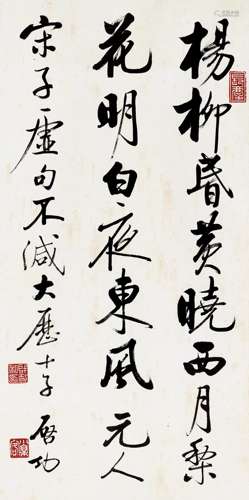 楊柳昏黃曉西月梨
花明白夜東風元人
宋子虛句不減大歷十子 啟功